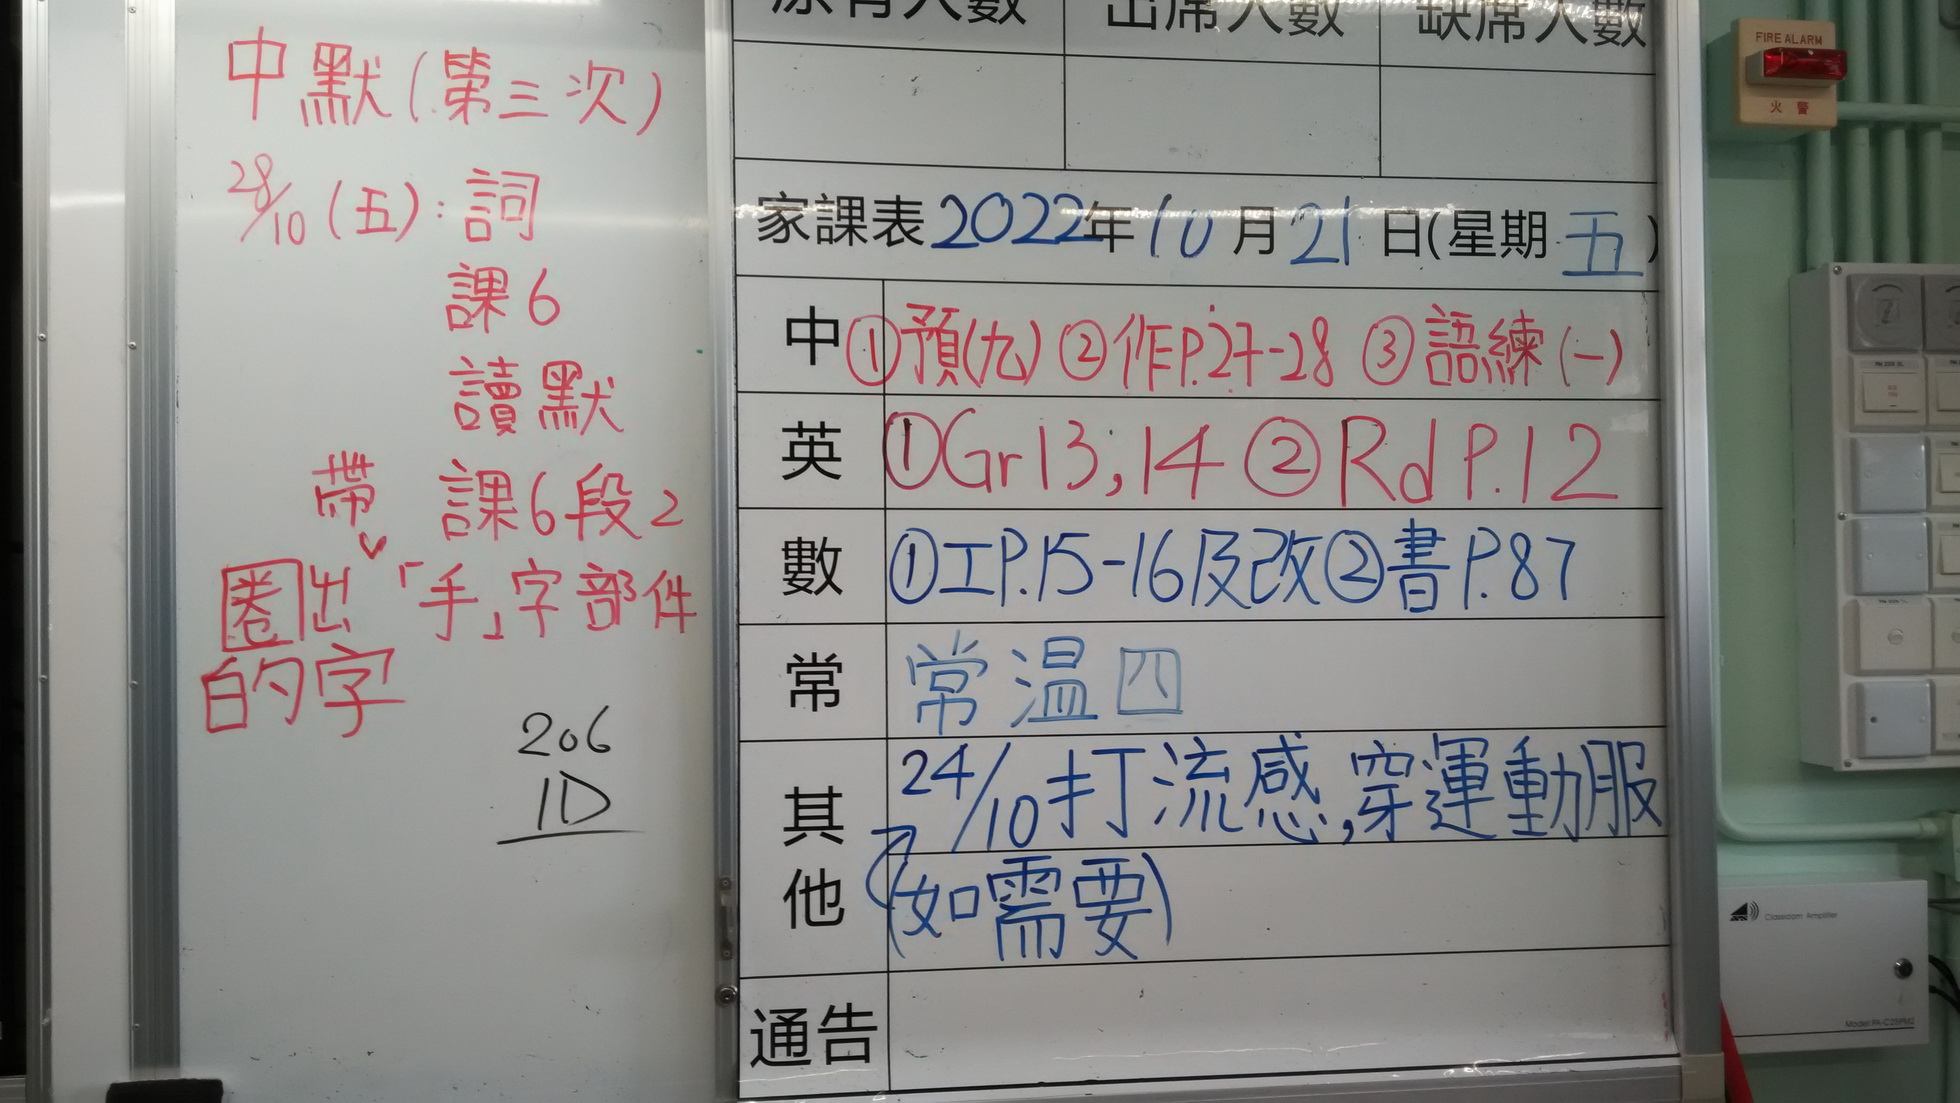 中默(第三次)
28/10(五):詞
課6
讀默
帶 課6段2
圈出「手」字部件
的字
206
1D
原有人數 出席人數 缺席人數
家課表2022年10月21日(星期五)
中 ①預(九) ②作P.27-28 ③語練(一)
英 ①Gr13,14 ②Rd P.12
數 ①工P.15-16及改②書P.87
常 常溫四
其他 24/10打流感,穿運動服
(如需要)
通告
FIRE ALARM
火警
Classroom Amplifier